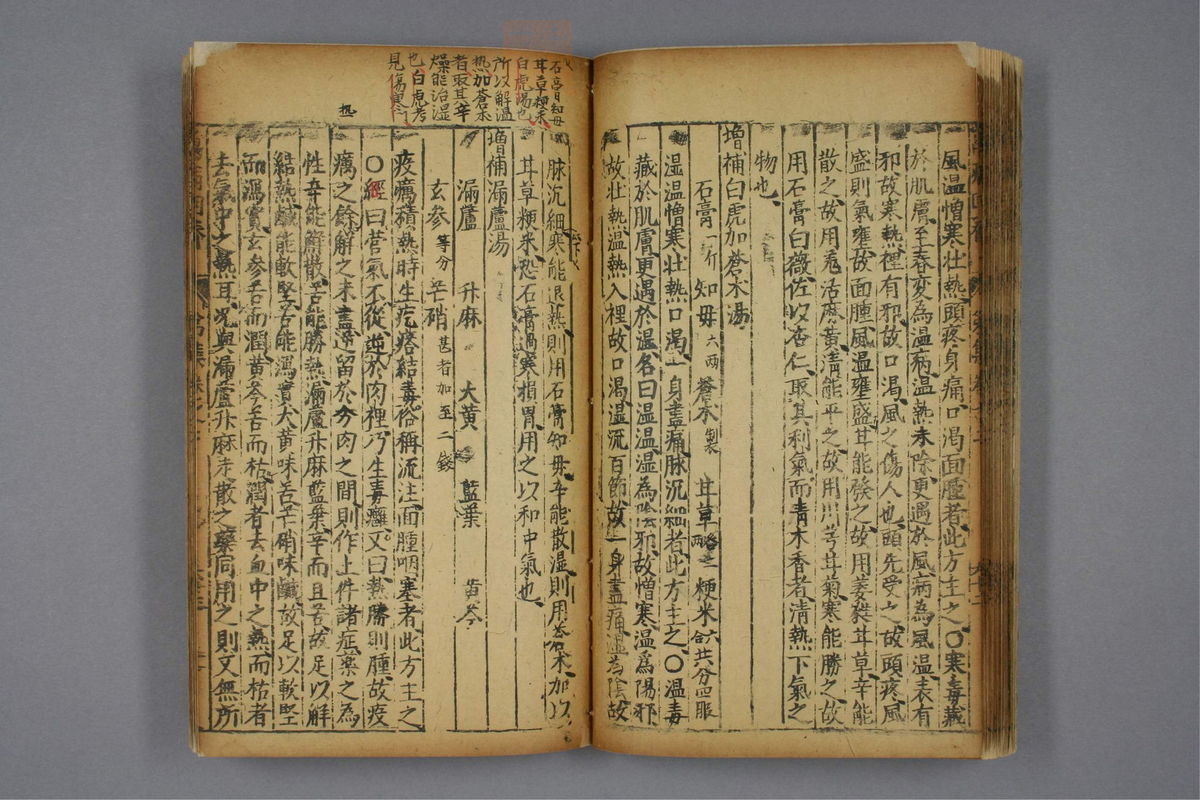 風温憎寒壮熱頭疼身痛口渇面腫者此方主之〇寒毒藏
於肌膚至春変為温病温熱未除更遇於風病為風温表有
邪故寒熱裡有邪故口渇風之傷人也頭先受之故頭疼風
盛則氣壅故面腫風温壅盛耳能發之故用姜葵耳草辛能
散之故用羌活麻黄淸能平之故用川芎耳菊寒能勝之故
用石膏白薇佐以杏仁取其利氣而青木香者清熱下氣之
物也
増補白虎加蒼朮湯
石膏 一斤 知母 六両 蒼朮 製 耳草 炙二両 粳米 六合 共分四服
湿温憎寒壮熱口渇一身盡痛脉沉細者此方主之〇温毒
藏於肌膚更遇於湿名曰湿温湿為陰邪故憎寒温為陽邪
故壮熱温熱入裡故口渇湿流百節故一身盡痛湿為陰故
脉沉細寒能退熱則用石膏知毋辛能散湿則用蒼朮加以
耳草粳米恐石膏過寒損胃用之以和中氣也
増補漏蘆湯
漏蘆 升麻 大黄 藍葉 黄芩
玄参 等分 芒硝 甚者加至二錢
疫癘積熱時生疙瘩結毒俗稱流注面腫咽塞者此方主之
〇經曰营氣不從逆於肉裡乃生毒癰又曰熱勝則腫故疫
癘之餘解之未盡滯留於分肉之間則作上件諸症藥之為
性辛能解散苦能勝熱漏蘆升麻藍葉辛而且苦故足以解
結熱鹹能軟堅苦能瀉實大黄味苦芒硝味鹹故足以軟堅
而瀉實玄参苦而潤黄芩苦而枯潤者去血中之熱而枯者
去氣中之熱耳况與漏蘆升麻走散之藥同用之則又無所
石膏知母
耳草粳米
白虎湯也
所以解温
热加蒼朮
者取其辛
燥能治湿
也白虎考
見傷寒門
热